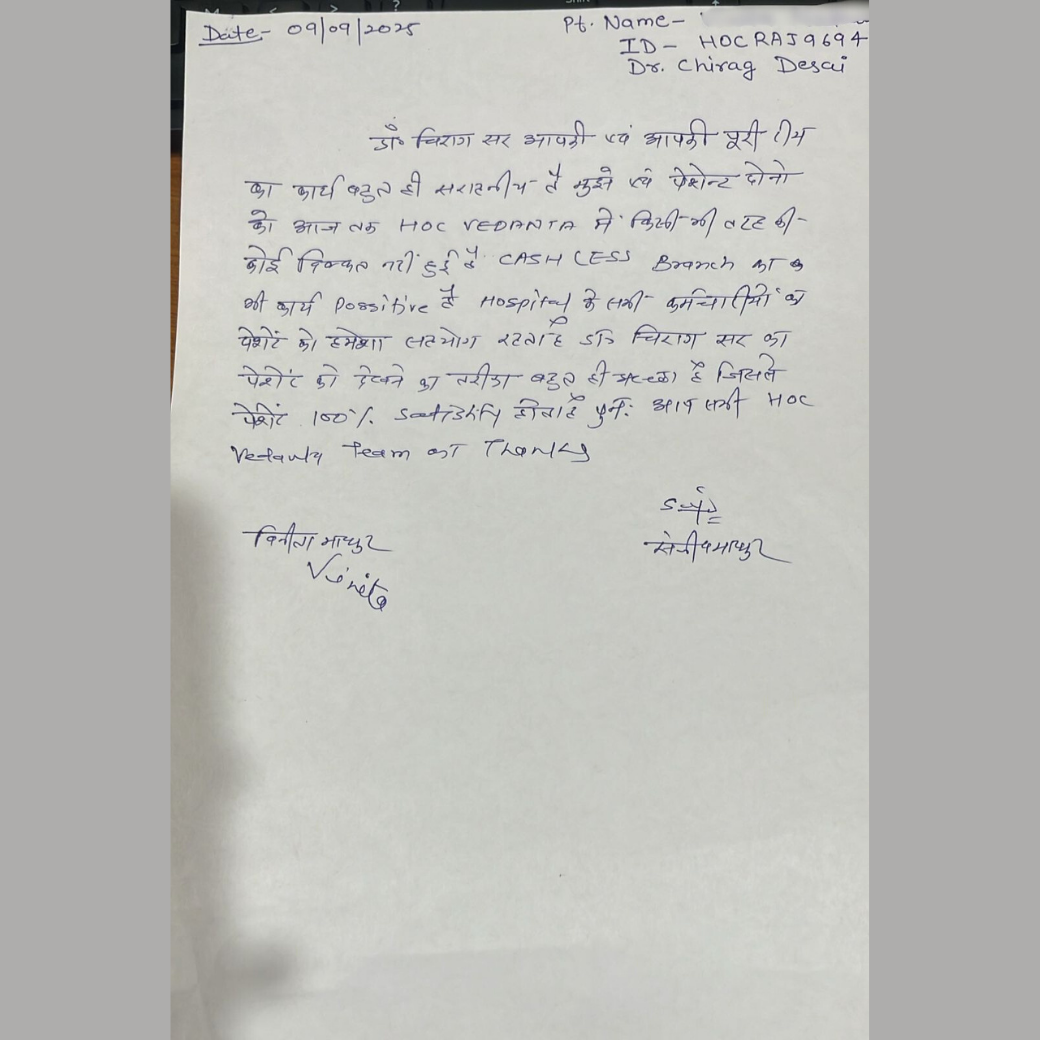 Date- 09/09/2025
Pt. Name-
ID- HOCRAJ9694
Dr. Chirag Desai
डॉ॰ चिराग सर आपकी एवं आपकी पूरी टीम
का कार्य बहुत ही सराहनीय है मुझे एवं पेशेन्ट दोनो
को आज तक HOC VEDANTA में किसी भी तरह की
कोई दिक्कत नहीं हुई है CASHLESS Branch का
भी कार्य Possitive है Hospital के सभी कर्मचारीयों का
पेशेंट को हमेशा सहयोग रहता है डॉ॰ चिराग सर का
पेशेंट को देखने का तरीका बहुत ही अच्छा है जिससे
पेशेंट 100% होता है पुनः आप सभी HOC
Vedanta Team का Thanks
विनीता माथुर
Vinita
माथुर